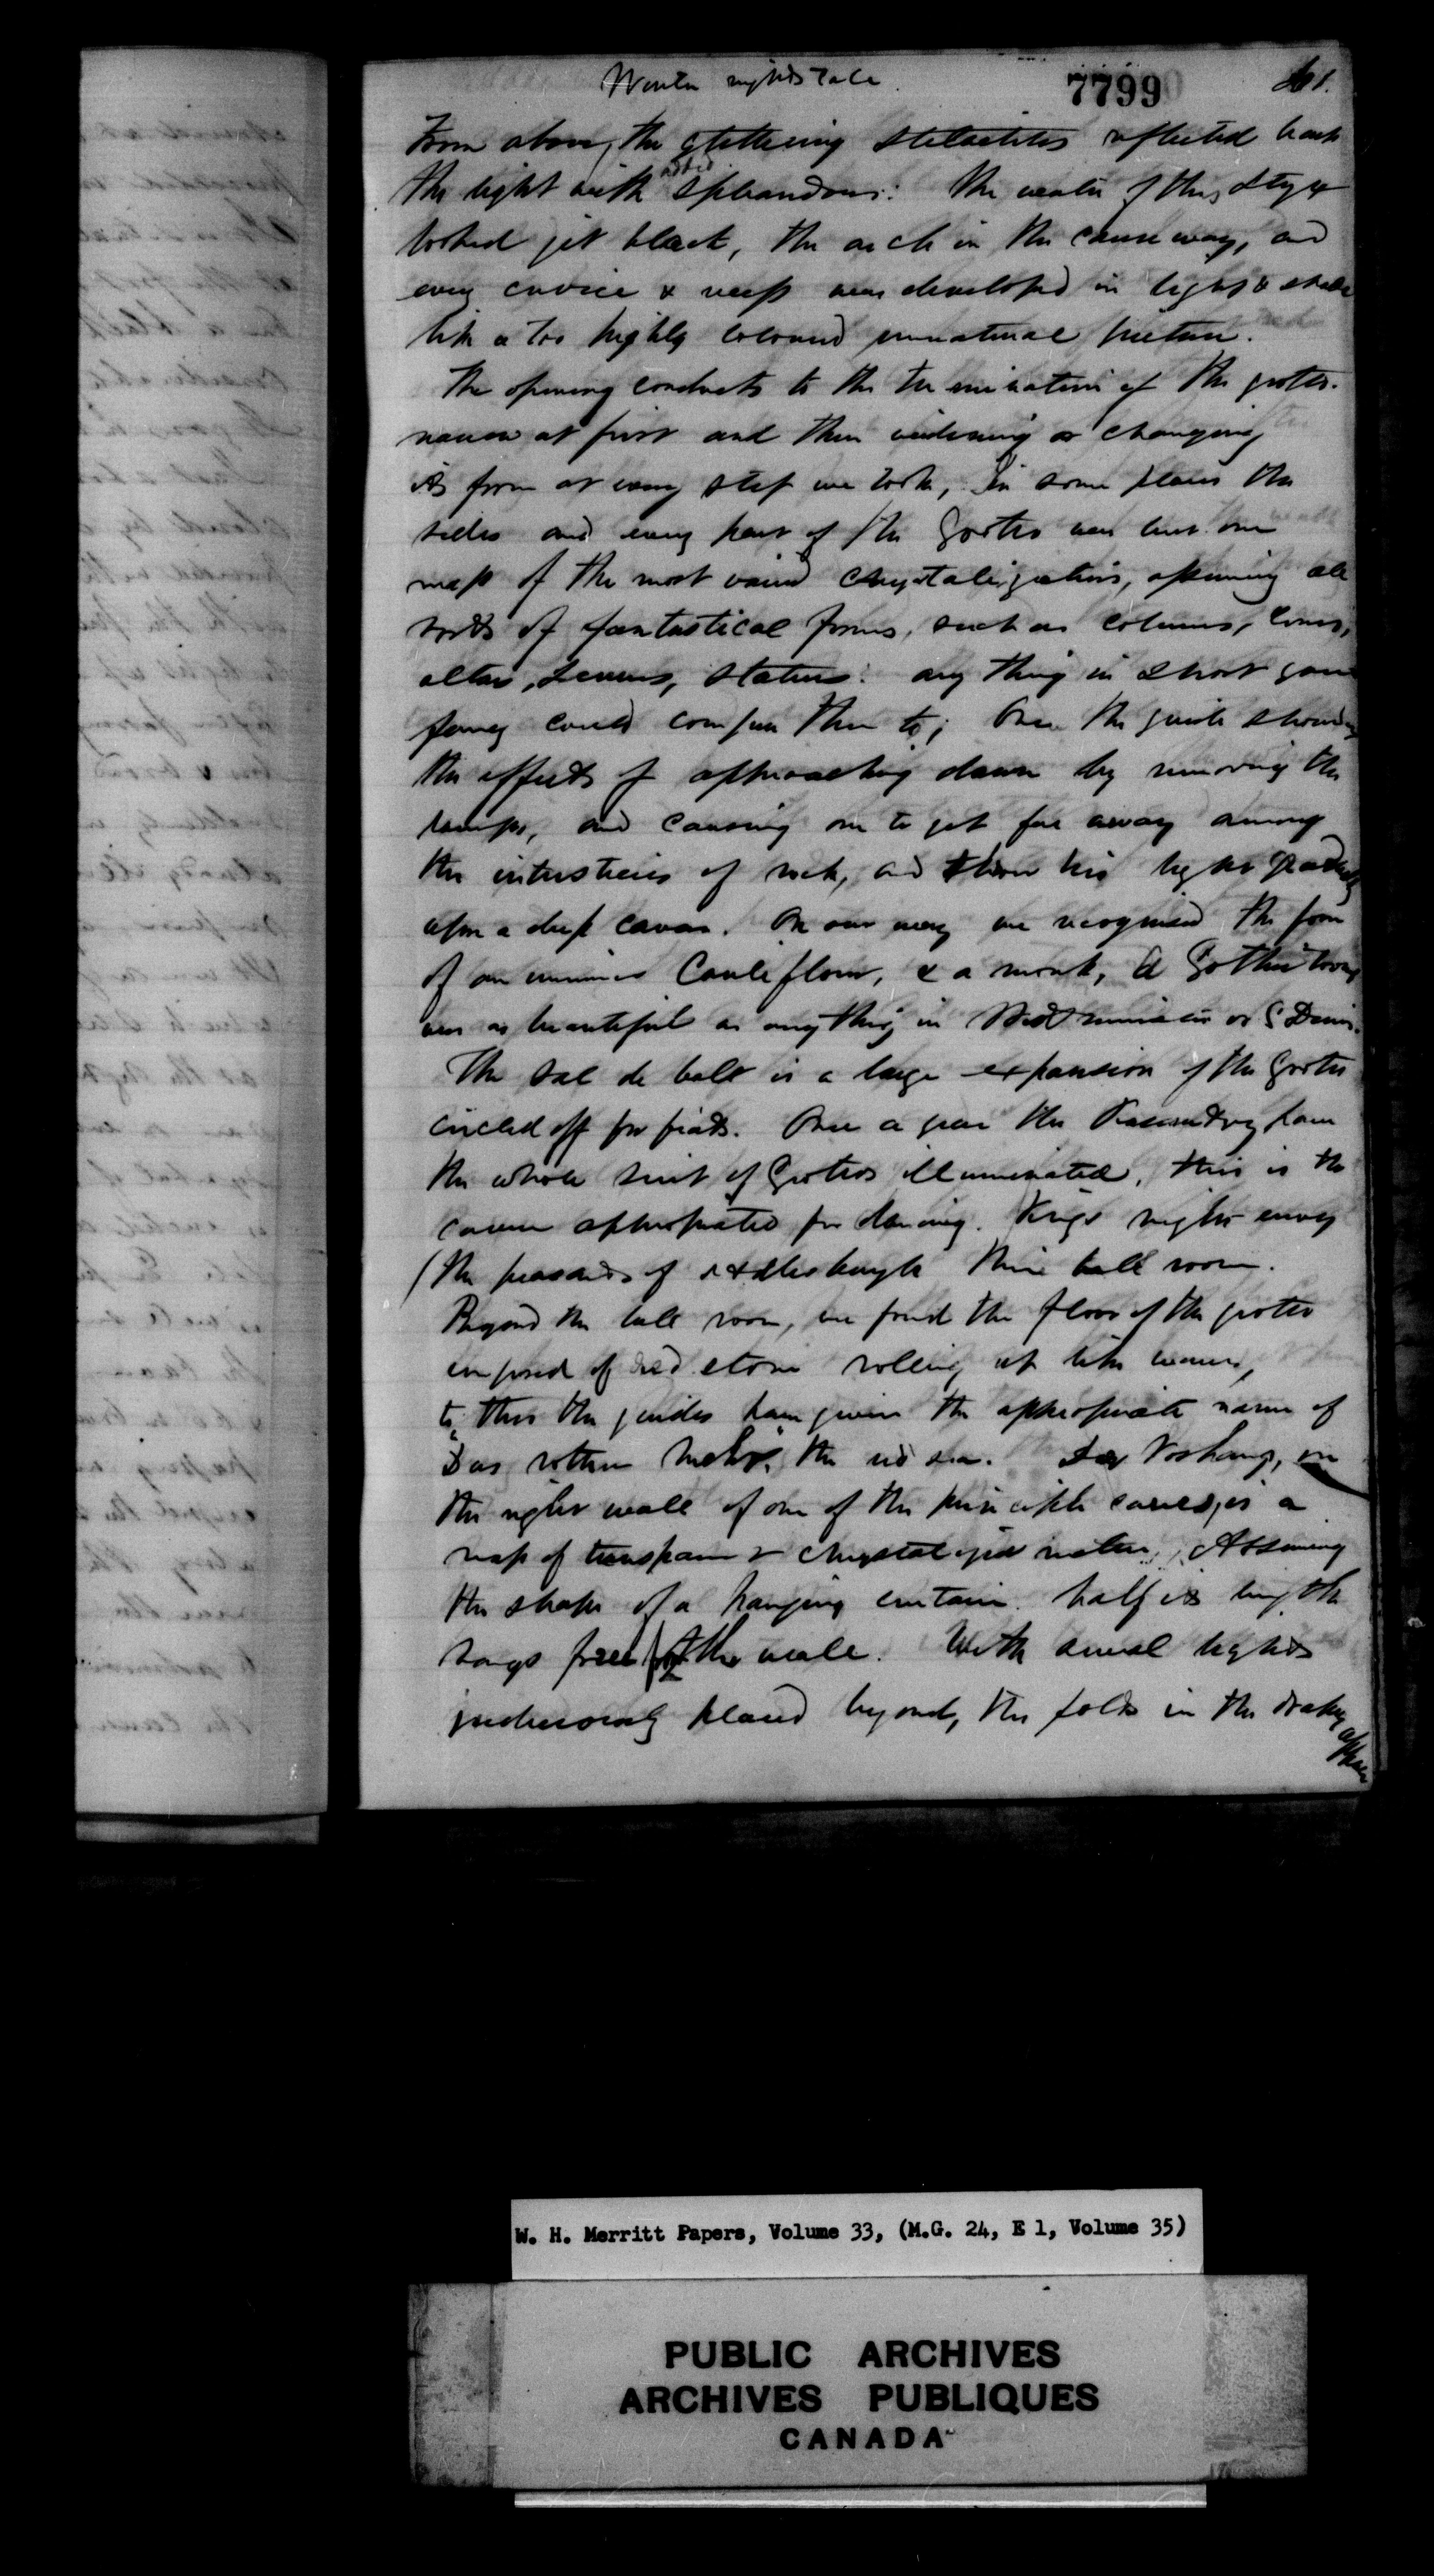 Winter nights Tale.
7799
From above, the glittering stelactites reflected back
the light with added spleandour: The water of this Styx
looked jet black, the arch in the causeway, and
every crevice & recess was developed in light & shade
like a too highly coloured unnatural picture.
The opening conducts to the termination of the grotto.
narrow at first and then widening or changing
its form at every step we took, In some places the
sides and every part of the Grotto was but one
mass of the most varied chrystalization, assuming all
sorts of fantastical forms, such as columns, cones,
altars, statues: any thing in short your
fancy could compare them to; Once the guide showed
the effects of approaching dawn by removing the
lamps, and causing one to get far away among
the intersticies of rock, and throw his light gradually
upon a deep cavern. On our way we recognised the form
of an immense Cauleflour, & a monk, A Gothic tower
was as beautiful as any thing in Westminster or St Denis.
The Sal de ball is a large expansion of the Grotto
circled off for seats. Once a year the Peasantry have
the whole suit of Grottos illuminated, this is the
cavern appropriated for dancing. Kings might envy
the peasants of Addlesburgh their ball room.
Beyond the ball room, we found the floor of the grotto
composed of red stone rolling up like waves,
to this the guides have given the appropriate name of
"Das rothen Mehr," the red sea. Der Vorhang, on
the right wall of one of the principle caves, is a
mass of transparent & chrystalized matter, Assuming
the shape of a hanging curtain. half its length
hangs free of the wall. With several lights
judiciously placed beyond, the folds in the drapery
appear
W. H. Merritt Papers, Volume 33, (M.G. 24, E 1, Volume 35)
PUBLIC ARCHIVES
ARCHIVES PUBLIQUES
CANADA